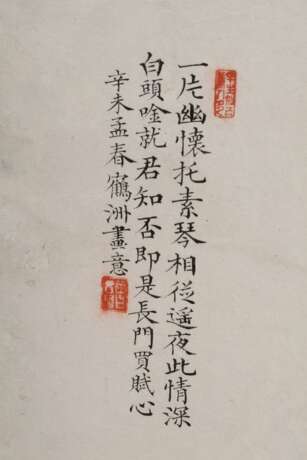 一片幽懷托素琴相從遥夜此情深
白頭唫就君知否即是長門買賦心
辛未孟春鶴洲畫意